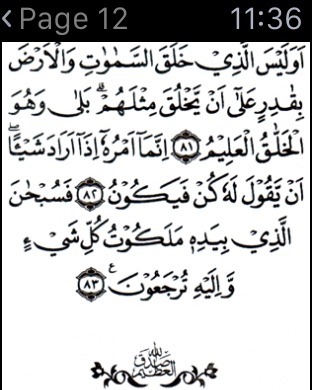 Page 12
11:36
اَوَلَيْسَ الَّذِيْ خَلَقَ السَّمٰوٰتِ وَالْاَرْضَ
بِقٰدِرٍ عَلٰٓى اَنْ يَّخْلُقَ مِثْلَهُمْ ۗ بَلٰى وَهُوَ
الْخَلّٰقُ الْعَلِيْمُ ﴿٨١﴾ اِنَّمَآ اَمْرُهٗٓ اِذَآ اَرَادَ شَيْـًٔاۖ
اَنْ يَّقُوْلَ لَهٗ كُنْ فَيَكُوْنُ ﴿٨٢﴾ فَسُبْحٰنَ
الَّذِيْ بِيَدِهٖ مَلَكُوْتُ كُلِّ شَيْءٍ
وَّاِلَيْهِ تُرْجَعُوْنَ ࣖ ﴿٨٣﴾
صدق الله العظيم